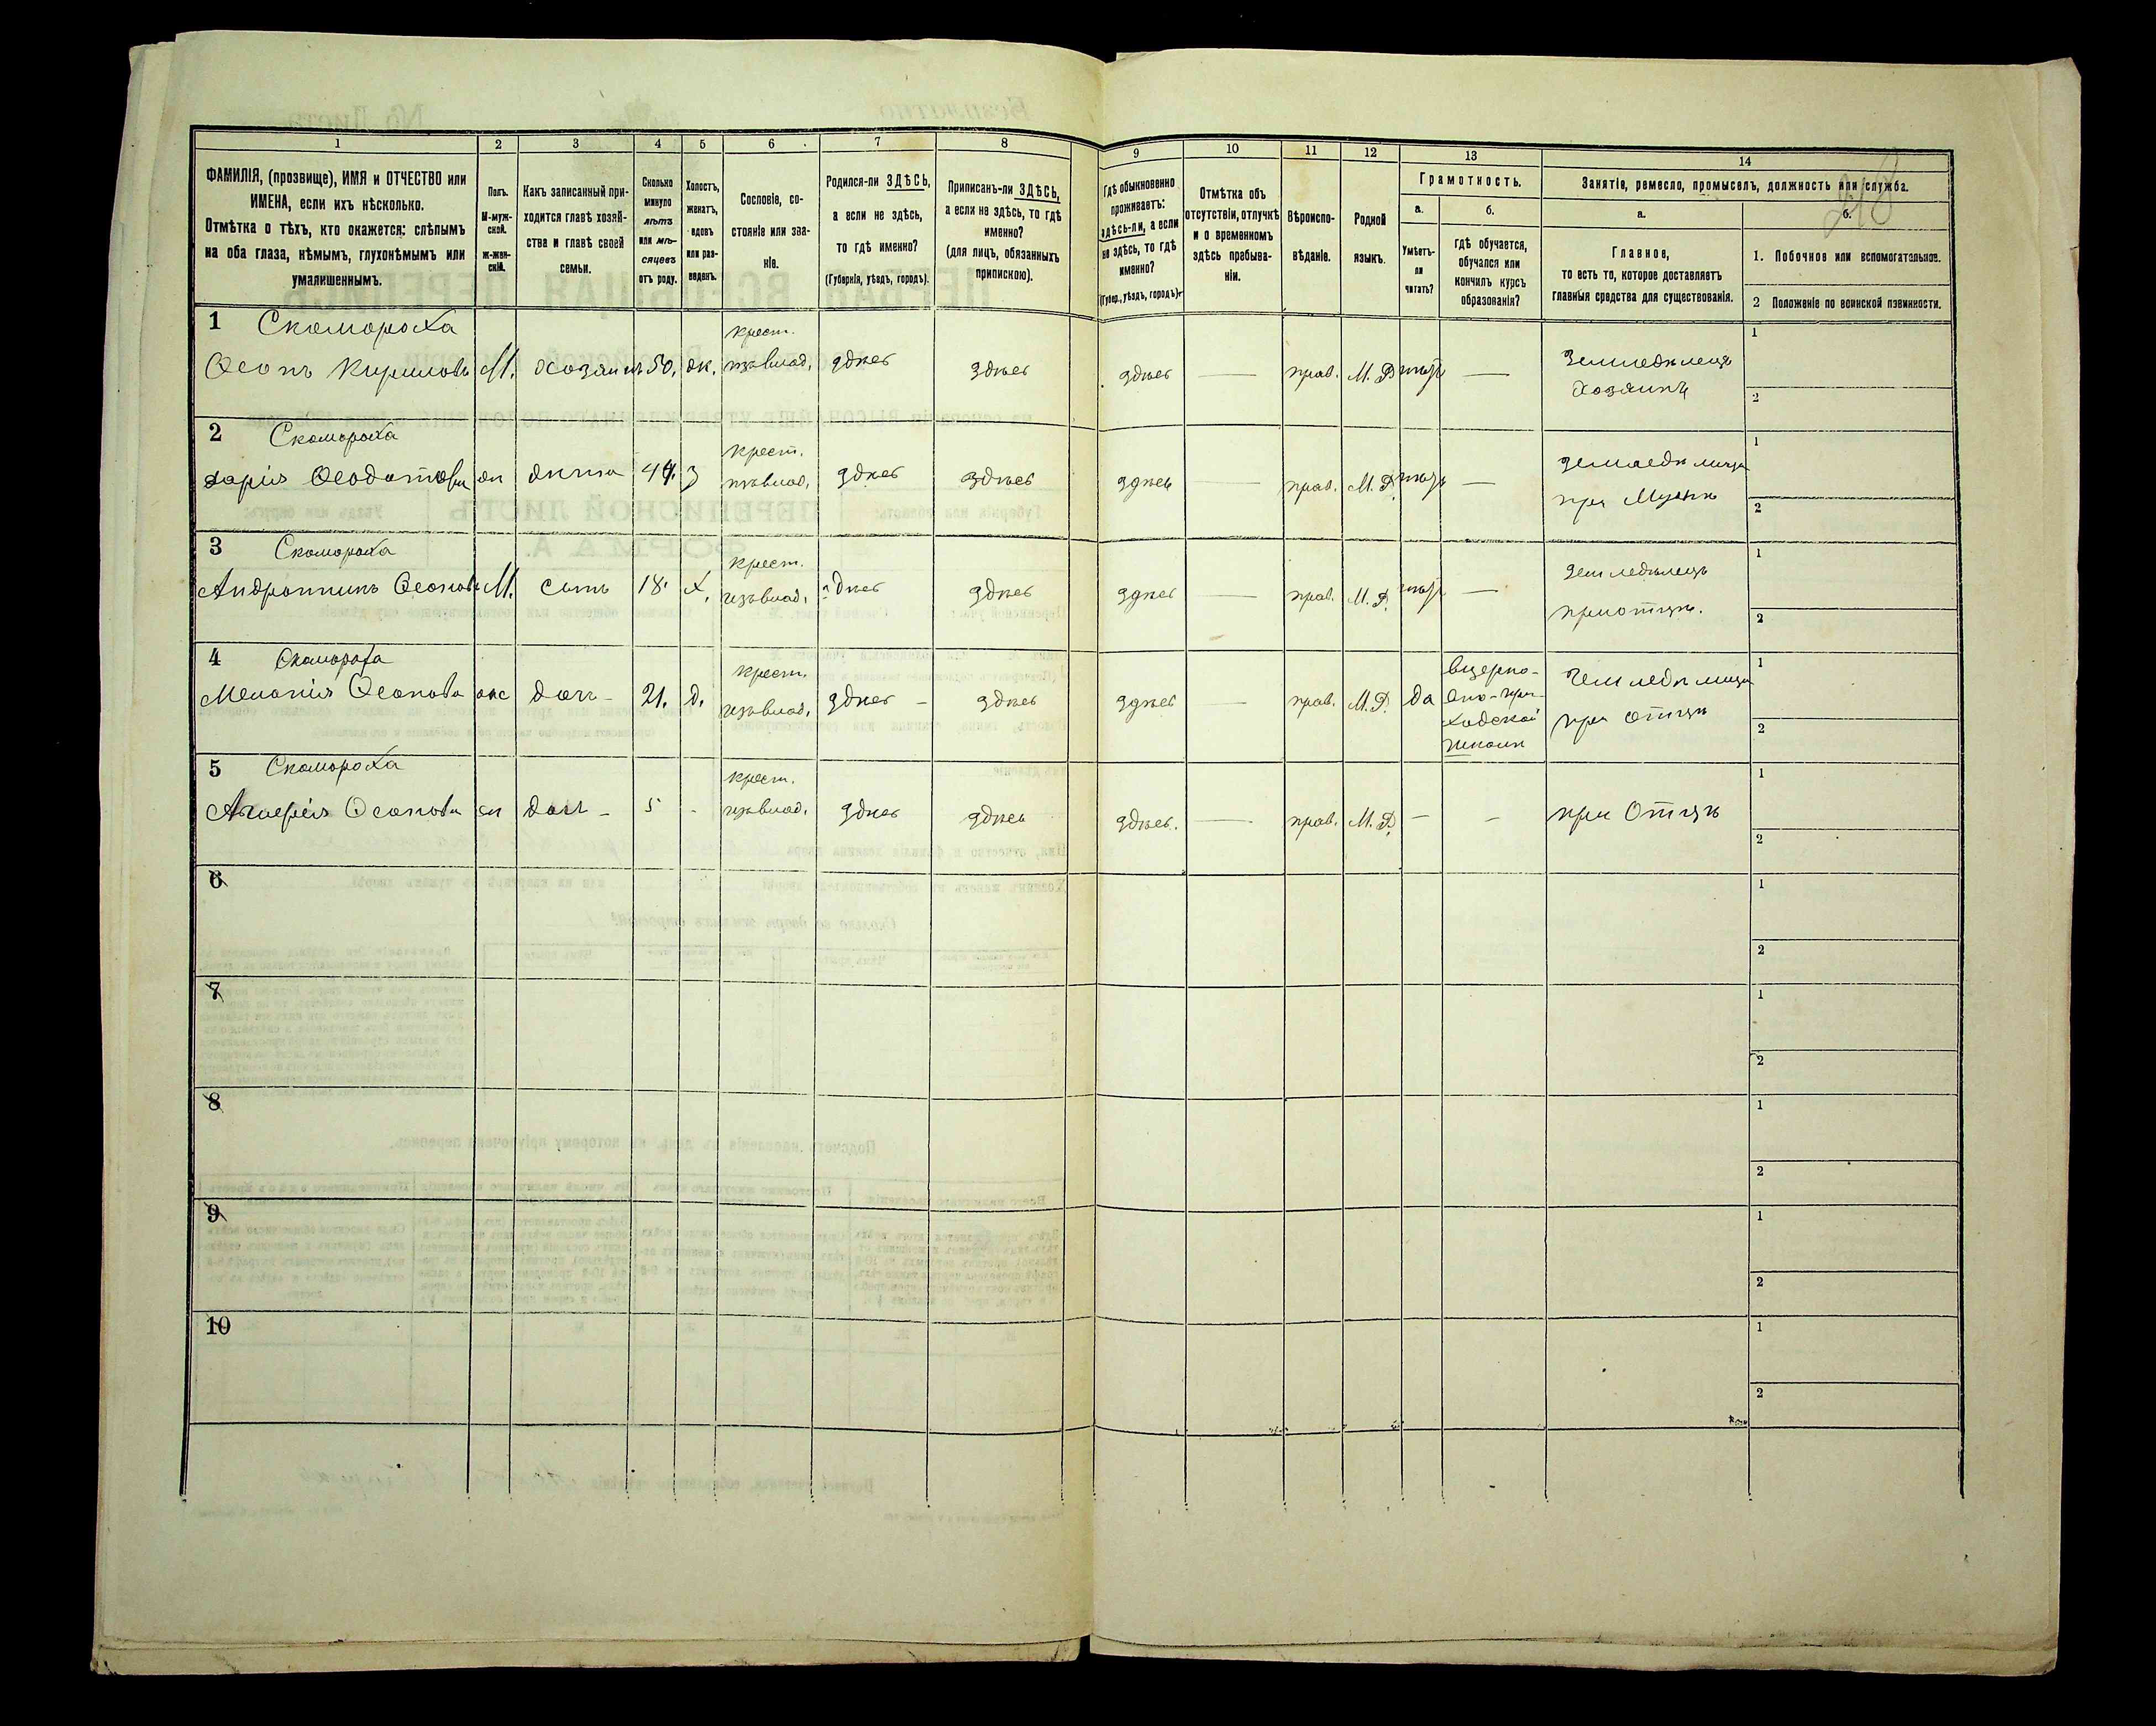 248
1 2 3 4 5 6 7 8 9 10 11 12 13 14
ФАМИЛІЯ, (прозвище), ИМЯ и ОТЧЕСТВО или
ИМЕНА, если ихъ нѣсколько.
Отмѣтка о тѣхъ, кто окажется: слѣпымъ
на оба глаза, нѣмымъ, глухонѣмымъ или
умалишеннымъ.
Полъ.
М-муж-
ской.
ж-жен-
скій.
Какъ записанный при-
ходится главѣ хозяй-
ства и главѣ своей
семьи.
Сколько
минуло
лѣтъ
или мѣ-
сяцевъ
отъ роду.
Холостъ,
женатъ,
вдовъ
или раз-
веденъ.
Сословіе, со-
стояніе или зва-
ніе.
Родился-ли ЗДѢСЬ,
а если не здѣсь,
то гдѣ именно?
(Губернія, уѣздъ, городъ).
Приписанъ-ли ЗДѢСЬ,
а если не здѣсь, то гдѣ
именно?
(для лицъ, обязанныхъ
припискою).
Гдѣ обыкновенно
проживаетъ:
здѣсь-ли, а если
не здѣсь, то гдѣ
именно?
(Губер., уѣздъ, городъ).
Отмѣтка объ
отсутствіи, отлучкѣ
и о временномъ
здѣсь пребыва-
ніи.
Вѣроиспо-
вѣданіе.
Родной
языкъ.
Грамотность.
а.
Умѣетъ-
ли
читать?
б.
гдѣ обучается,
обучался или
кончилъ курсъ
образованія?
Занятіе, ремесло, промыселъ, должность или служба.
а.
Главное,
то есть то, которое доставляетъ
главныя средства для существованія.
б.
1. Побочное или вспомогательное.
2 Положеніе по воинской повинности.
1 Скомороха крест. Земледѣлецъ 1
Осопъ Кириловъ М. хозяинъ 50. ж. изъ влад. здѣсь здѣсь здѣсь — прав. М. Р. нѣтъ — хозяинъ 2
2 Скомороха крест. земледѣлица 1
Ѳеодотова ж жена 44. з изъ влад. здѣсь здѣсь здѣсь — прав. М. Р. нѣтъ — при Мужѣ 2
3 Скомороха крест. земледѣлецъ 1
М. сынъ 18. х. изъ влад. здѣсь здѣсь здѣсь — прав. М. Р. нѣтъ — при отцѣ. 2
4 Скомороха крест. вцерко- Земледѣлица 1
Меланія ж дочь – 21. д. изъ влад. здѣсь – здѣсь здѣсь — прав. М. Р. да вно-при- при отцѣ
ходской 2
школѣ
5 Скомороха крест. 1
ж дочь – 5 - изъ влад. здѣсь здѣсь здѣсь. — прав. М. Р. – – при Отцѣ 2
6 1
2
7 1
2
8 1
2
9 1
2
10 1
2